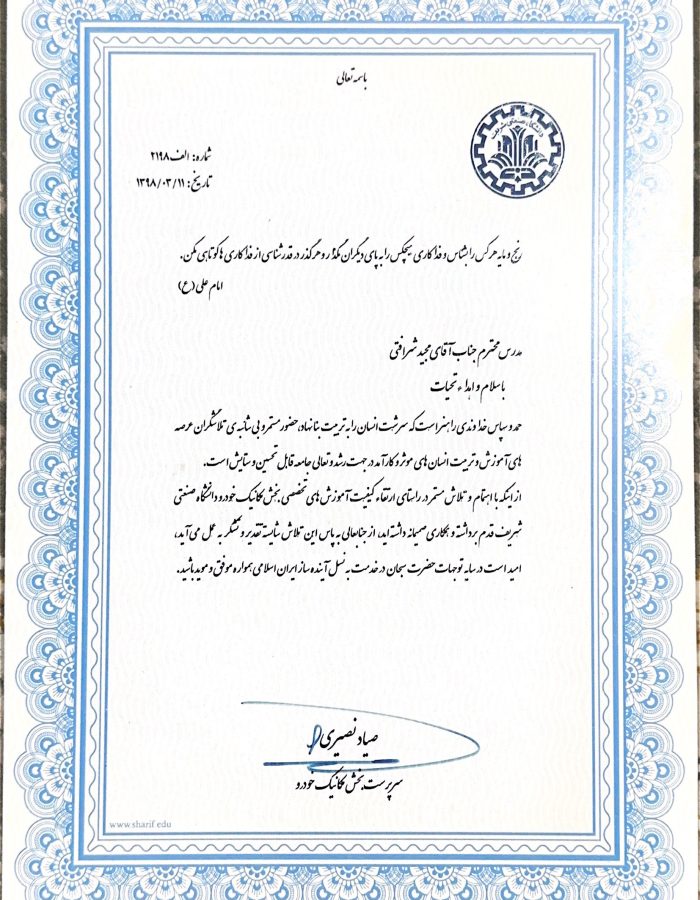 باسمه تعالی
دانشگاه صنعتی شریف
شماره: الف ۲۱۹۸
تاریخ: ۱۳۹۸/۰۳/۱۱
رنج و مایه هرکس را بشناس و فداکاری هیچکس را به پای دیگران مگذار و هرگز در قدرشناسی از فداکاری ها کوتاهی مکن.
امام علی (ع)
مدرس محترم جناب آقای مجید شرافتی
با سلام و اهداء تحیات
حمد و سپاس خداوندی را سزاست که سرشت انسان را به تربیت بنا نهاد، حضور مستمر و بی شائبه ی تلاشگران عرصه
های آموزش و تربیت انسان های موثر و کارآمد در جهت رشد و تعالی جامعه قابل تحسین و ستایش است.
از اینکه با اهتمام و تلاش مستمر در راستای ارتقاء کیفیت آموزش های تخصصی بخش مکانیک خودرو دانشگاه صنعتی
شریف قدم برداشته و همکاری صمیمانه داشته اید، از جنابعالی به پاس این تلاش شایسته تقدیر و تشکر به عمل می آید،
امید است در سایه توجهات حضرت سبحان در خدمت به نسل آینده ساز ایران اسلامی همواره موفق و موید باشید.
صیاد نصیری
سرپرست بخش مکانیک خودرو
www.sharif.edu